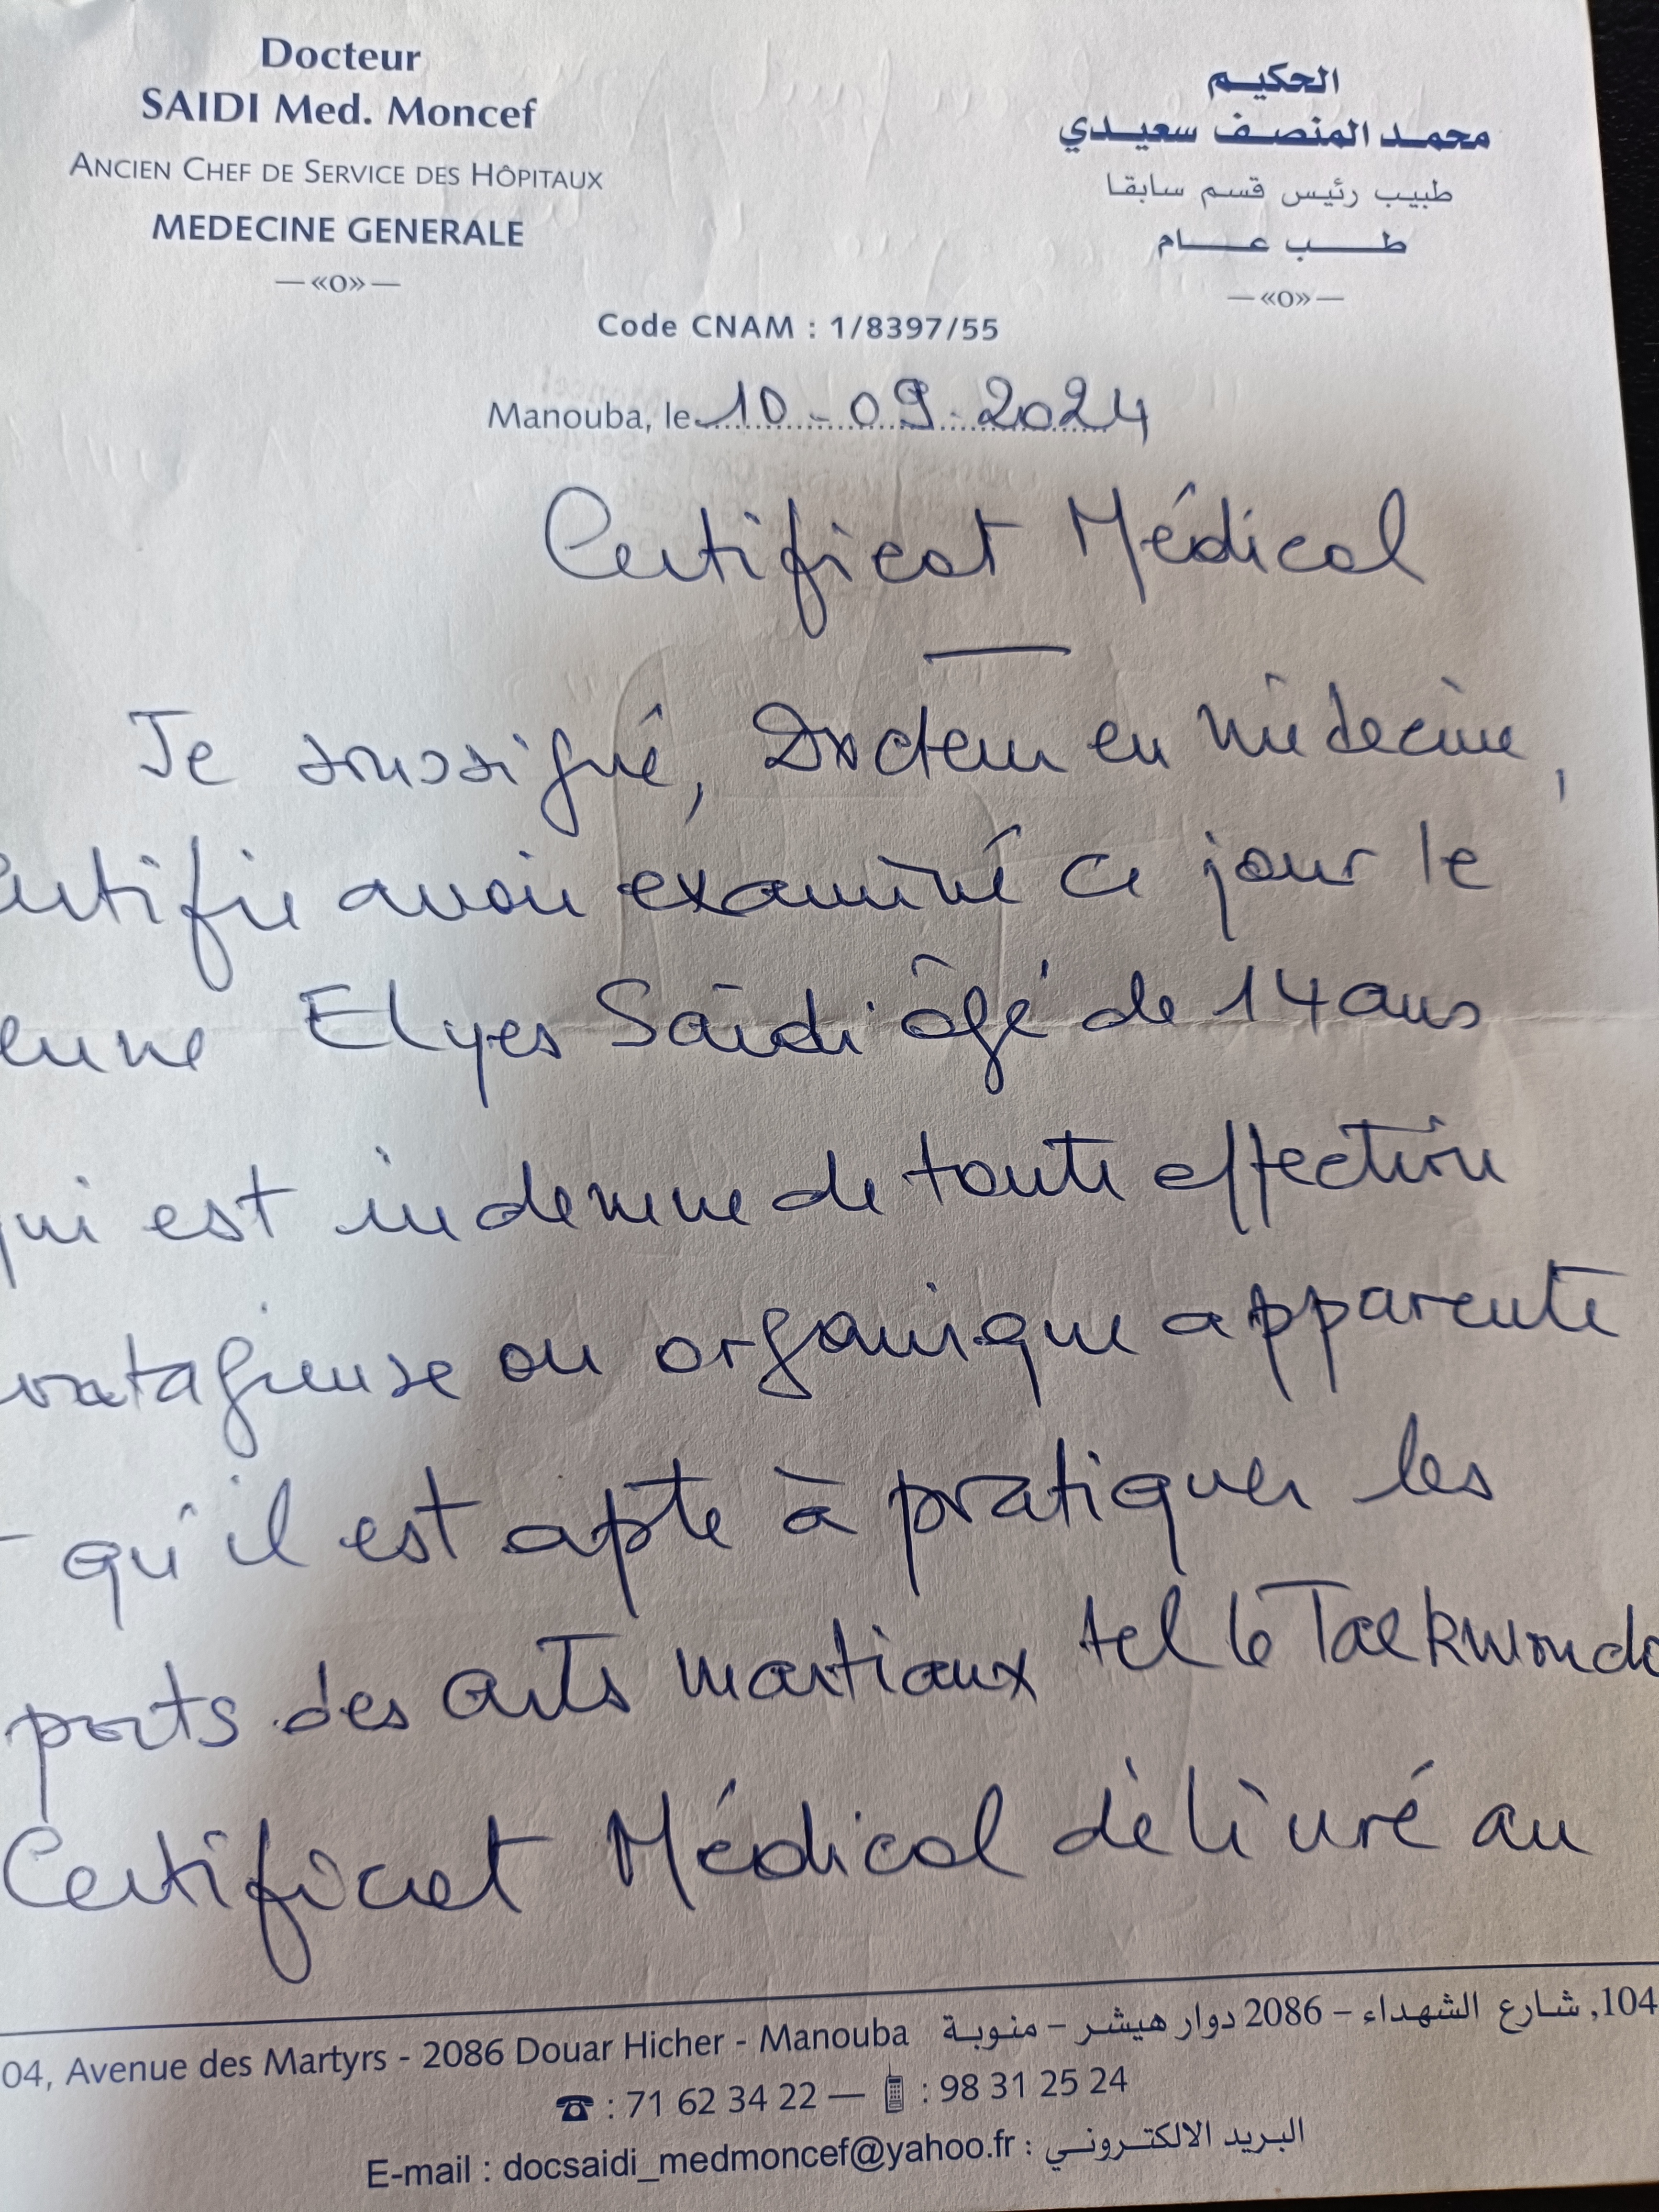 Docteur
SAIDI Med. Moncef
ANCIEN CHEF DE SERVICE DES HÔPITAUX
MEDECINE GENERALE
—«O»—
الحكيم
محمد المنصف سعيدي
طبيب رئيس قسم سابقا
طب عام
—«O»—
Code CNAM : 1/8397/55
Manouba, le 10-09-2024
Certificat Médical
Je soussigné, Docteur en médecine,
ertifie avoir éxaminé ce jour le
eune Elyes Saïdi âgé de 14 ans
qui est indemne de toute affection
ontagieuse ou organique apparente
qu'il est apte à pratiquer les
ports des arts martiaux tel le Taekwondo
Certificat Médical délivré au
04, Avenue des Martyrs - 2086 Douar Hicher - Manouba
104, شارع الشهداء – 2086 دوار هيشر – منوبة
☎ : 71 62 34 22 — 📱 : 98 31 25 24
E-mail : docsaidi_medmoncef@yahoo.fr : البريد الالكتروني